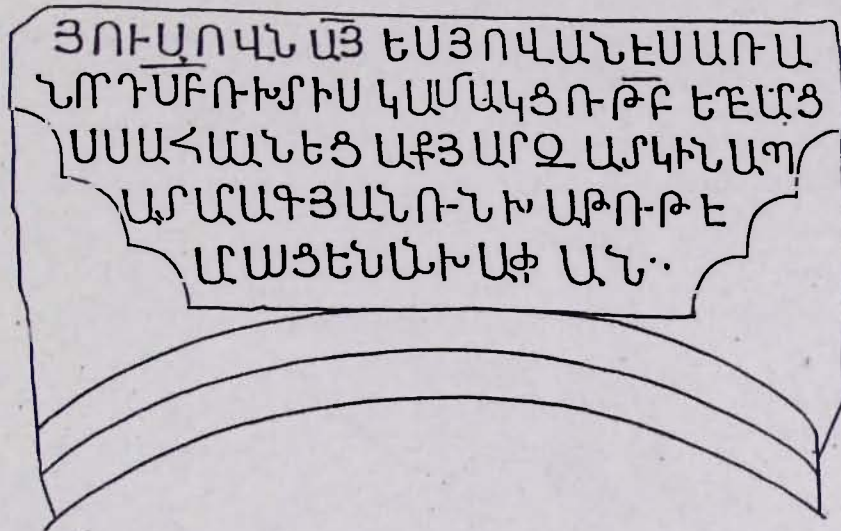 ՅՈՒՍՈՎՆ ԱՅ ԵՍՅՈՎԱՆԷՍԱՌԱ
ՆՈՐԴՍԲՈՒԽՏԻՍ ԿԱՄԱԿՑՈՒԹԲ ԵՂԲԱՑ
ՍՍԱՀՄԱՆԵՑ ԱՔՅ ԱՐՋ ԱՏԿԻՆԱՊ
ԱՏՄԱԳՅԱՆՈՒՆԽ ԱԹՈՒԹԷ
ՄԱՅՑԵՆԱՆԽԱՓ ԱՆ..